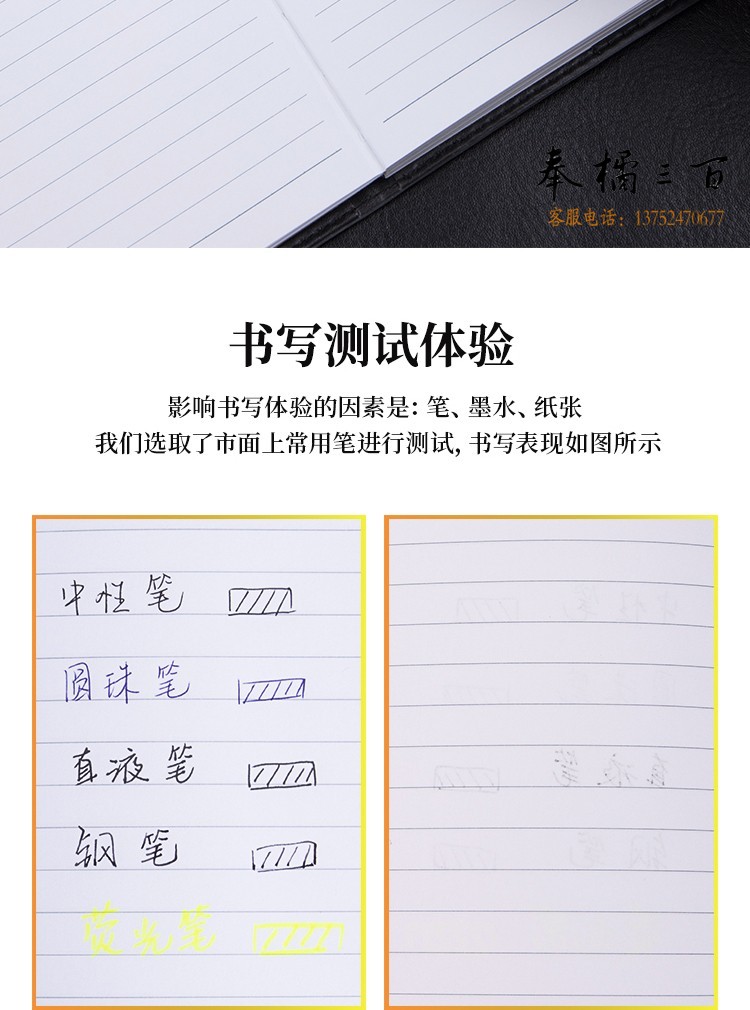 奉橘三百
客服电话：13752470677
书写测试体验
影响书写体验的因素是：笔、墨水、纸张
我们选取了市面上常用笔进行测试，书写表现如图所示
中性笔
圆珠笔
直液笔
钢笔
荧光笔